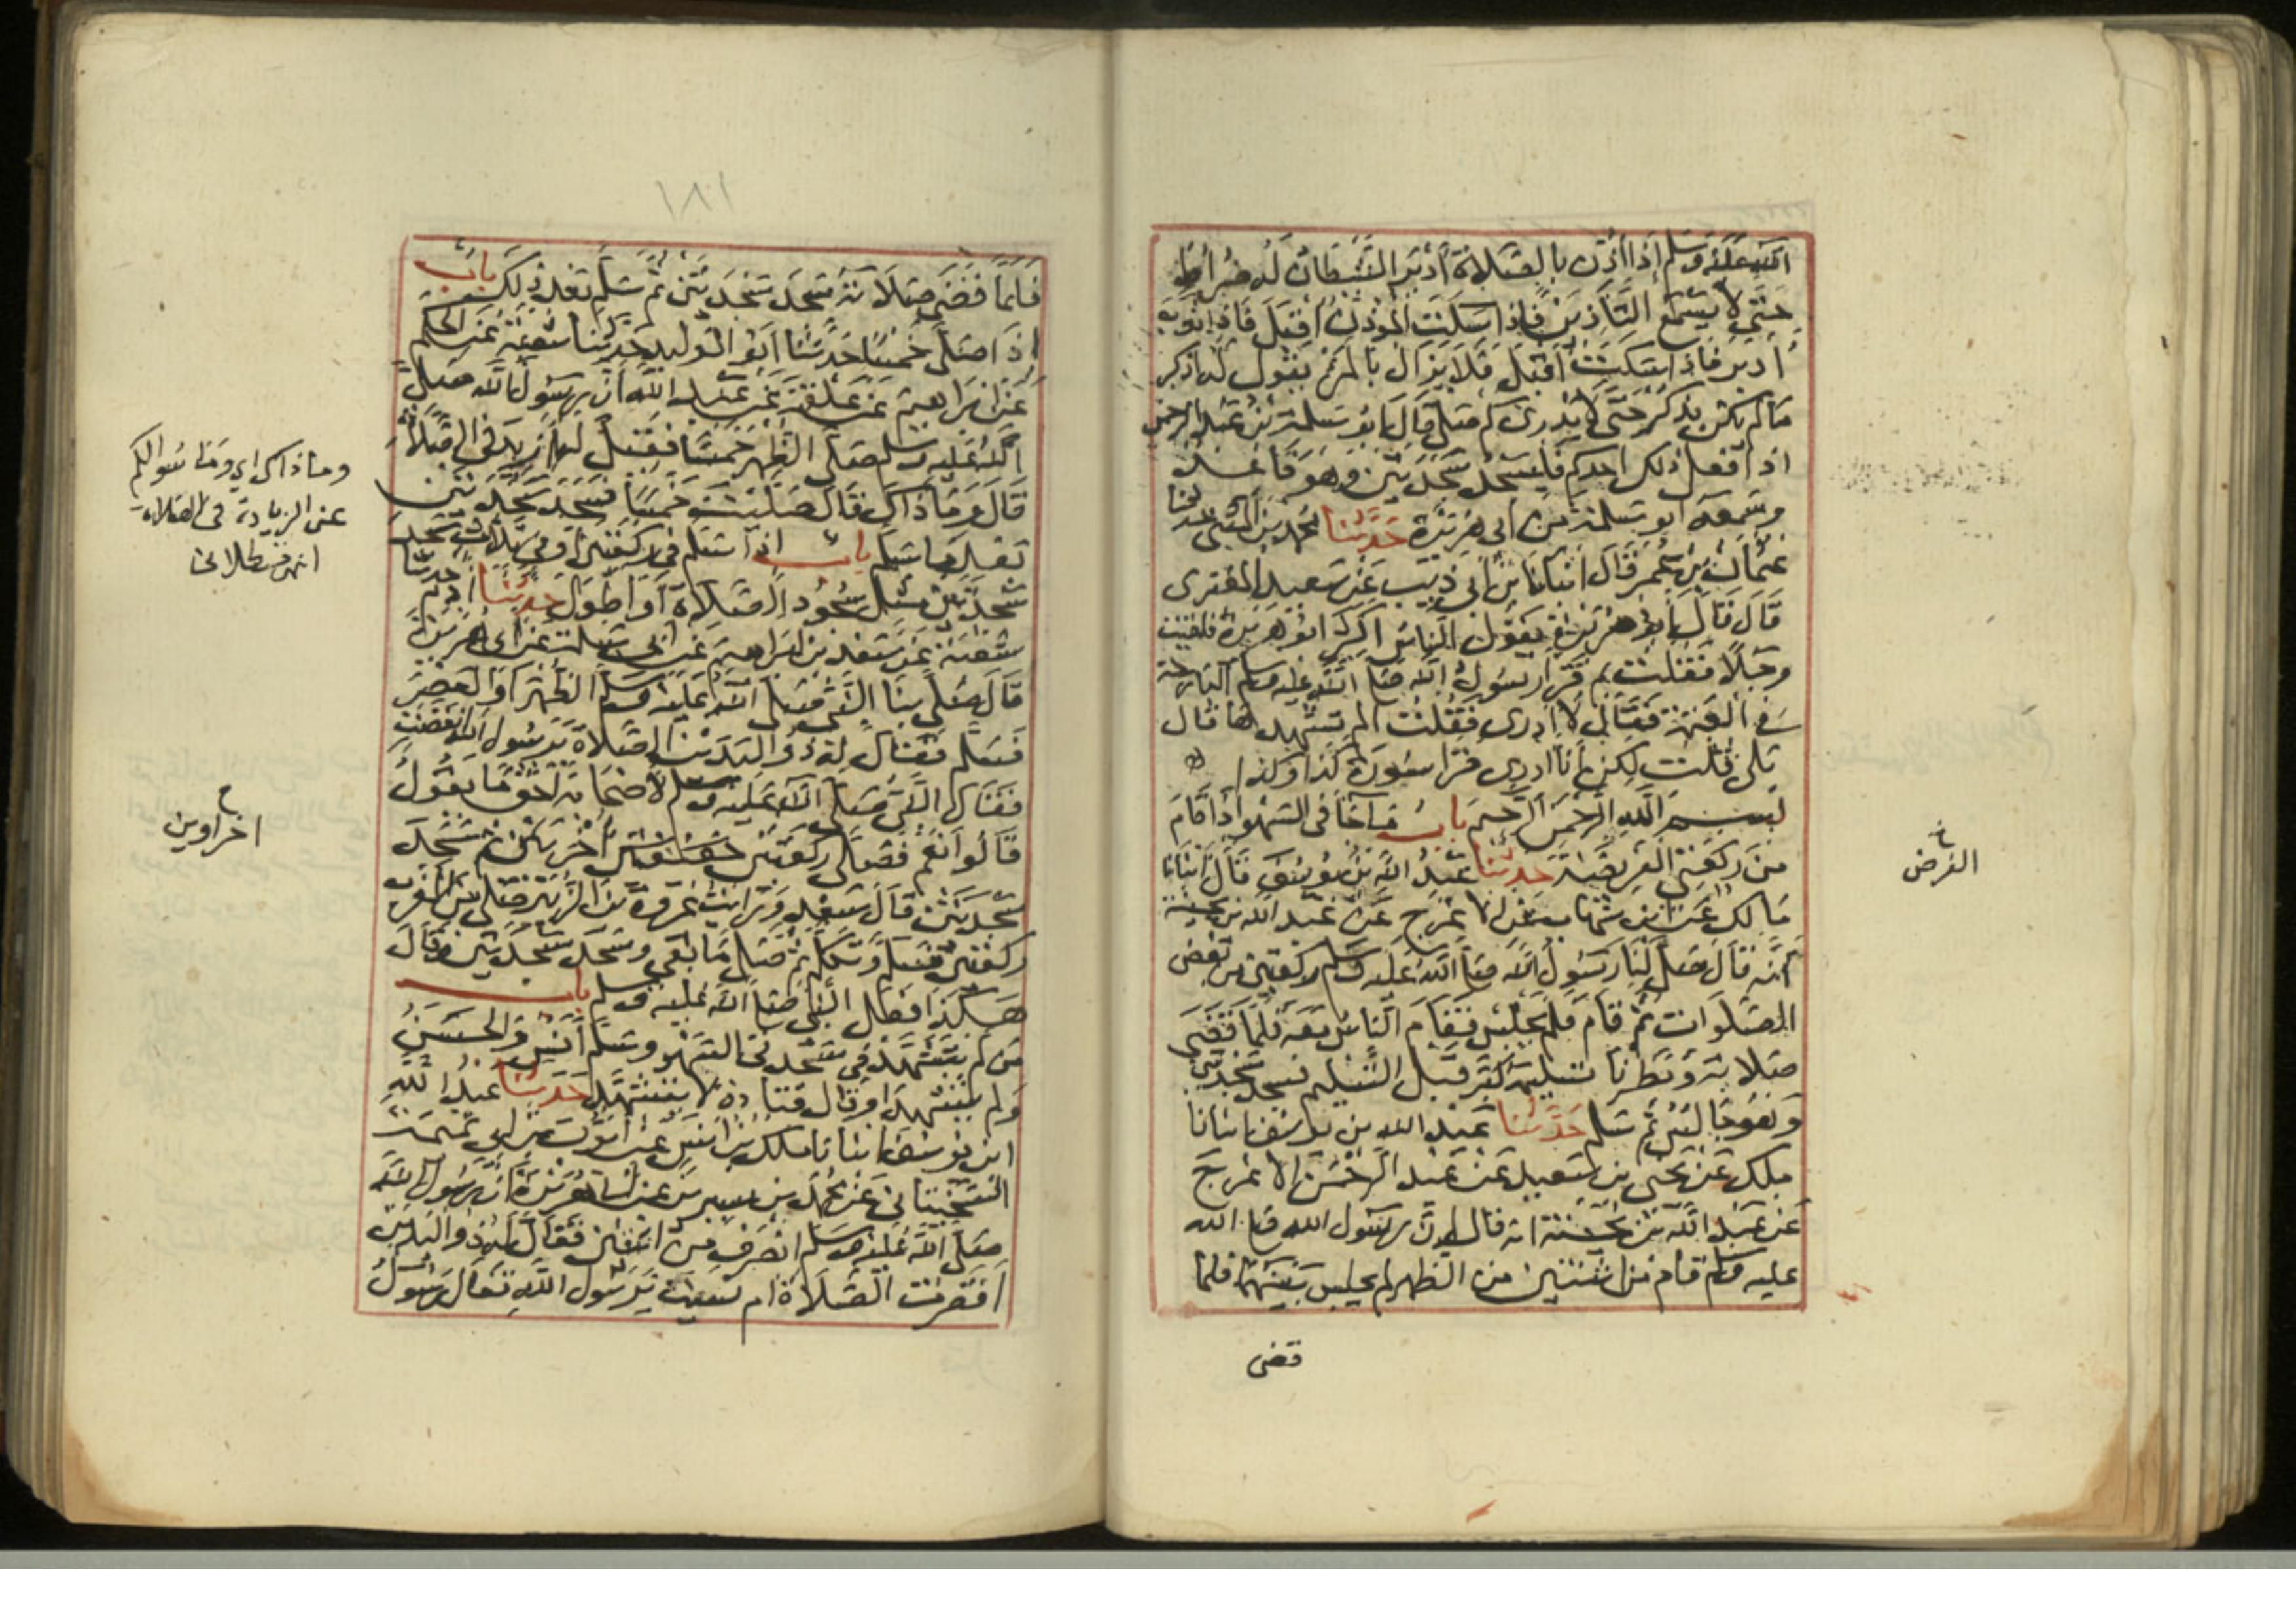 الله عليه وسلم إذا أذن بالصلاة أدبر الشيطان له ضراط
حتى لا يسمع التأذين فإذا سكت المؤذن أقبل فإذا ثوب
أدبر فإذا سكت أقبل فلا يزال بالمرء يقول له اذكر
ما لم يكن يذكر حتى لا يدري كم صلى قال أبو سلمة بن عبد الرحمن
إذا فعل ذلك أحدكم فليسجد سجدتين وهو قاعد
وسمعه أبو سلمة من أبي هريرة حدثنا محمد بن المثنى حدثنا
عثمان بن عمر قال أنبأنا ابن أبي ذيب عن سعيد المقبري
قال قال أبو هريرة يقول الناس أكثر أبو هريرة فلقيت
رجلا فقلت بم قرأ رسول الله صلى الله عليه وسلم البارحة
في العتمة فقال لا أدري فقلت ألم تشهدها قال
بلى قلت لكن أنا أدري قرأ سورة كذا وكذا
بسم الله الرحمن الرحيم باب ما جا في السهو إذا قام
من ركعتي الفريضة حدثنا عبد الله بن يوسف قال أنبأنا
مالك عن ابن شهاب عن الأعرج عن عبد الله بن بحينة
أنه قال صلى لنا رسول الله صلى الله عليه وسلم ركعتين من بعض
الصلوات ثم قام فلم يجلس فقام الناس معه فلما قضى
صلاته ونظرنا تسليمه كبر قبل التسليم فسجد سجدتين
وهو جالس ثم سلم حدثنا عبد الله بن يوسف أنبأنا
ملك عن يحيى بن سعيد عن عبد الرحمن الأعرج
عن عبد الله بن بحينة أنه قال إن رسول الله صلى الله
عليه وسلم قام من اثنتين من الظهر لم يجلس بينهما فلما
قضى
الفرض
١٨١
فلما قضى صلاته سجد سجدتين ثم سلم بعد ذلك باب
إذا صلى خمسا حدثنا أبو الوليد حدثنا شعبة عن الحكم
عن إبراهيم عن علقمة عن عبد الله أن رسول الله صلى
الله عليه وسلم صلى الظهر خمسا فقيل له أزيد في الصلاة
قال وما ذاك قال صليت خمسا فسجد سجدتين
بعد ما سلم باب إذا سلم في ركعتين أو في ثلاث سجد
سجدتين مثل سجود الصلاة أو أطول حدثنا آدم حدثنا
شعبة عن سعد بن إبراهيم عن أبي سلمة عن أبي هريرة
قال صلى بنا النبي صلى الله عليه وسلم الظهر أو العصر
فسلم فقال له ذو اليدين الصلاة يرسول الله أنقصت
فقال النبي صلى الله عليه وسلم لأصحابه أحق ما يقول
قالوا نعم فصلى ركعتين أخرتين ثم سجد
سجدتين قال سعد ورأيت عروة بن الزبير صلى من المغرب
ركعتين فسلم وتكلم ثم صلى ما بقي وسجد سجدتين وقال
هكذا فعل النبي صلى الله عليه وسلم باب
من لم يتشهد في سجدتي السهو وسلم أنس والحسن
ولم يتشهدا وقال قتادة لا يتشهد حدثنا عبد الله
ابن يوسف أنبأنا ملك بن أنس عن أيوب بن أبي تميمة
السختياني عن محمد بن سيرين عن أبي هريرة أن رسول الله
صلى الله عليه وسلم انصرف من اثنتين فقال له ذو اليدين
أقصرت الصلاة أم نسيت يرسول الله فقال رسول
وماذاك اي وما سوالكم
عن الزيادة في الصلاة
انتهى قسطلاني
اخراوين